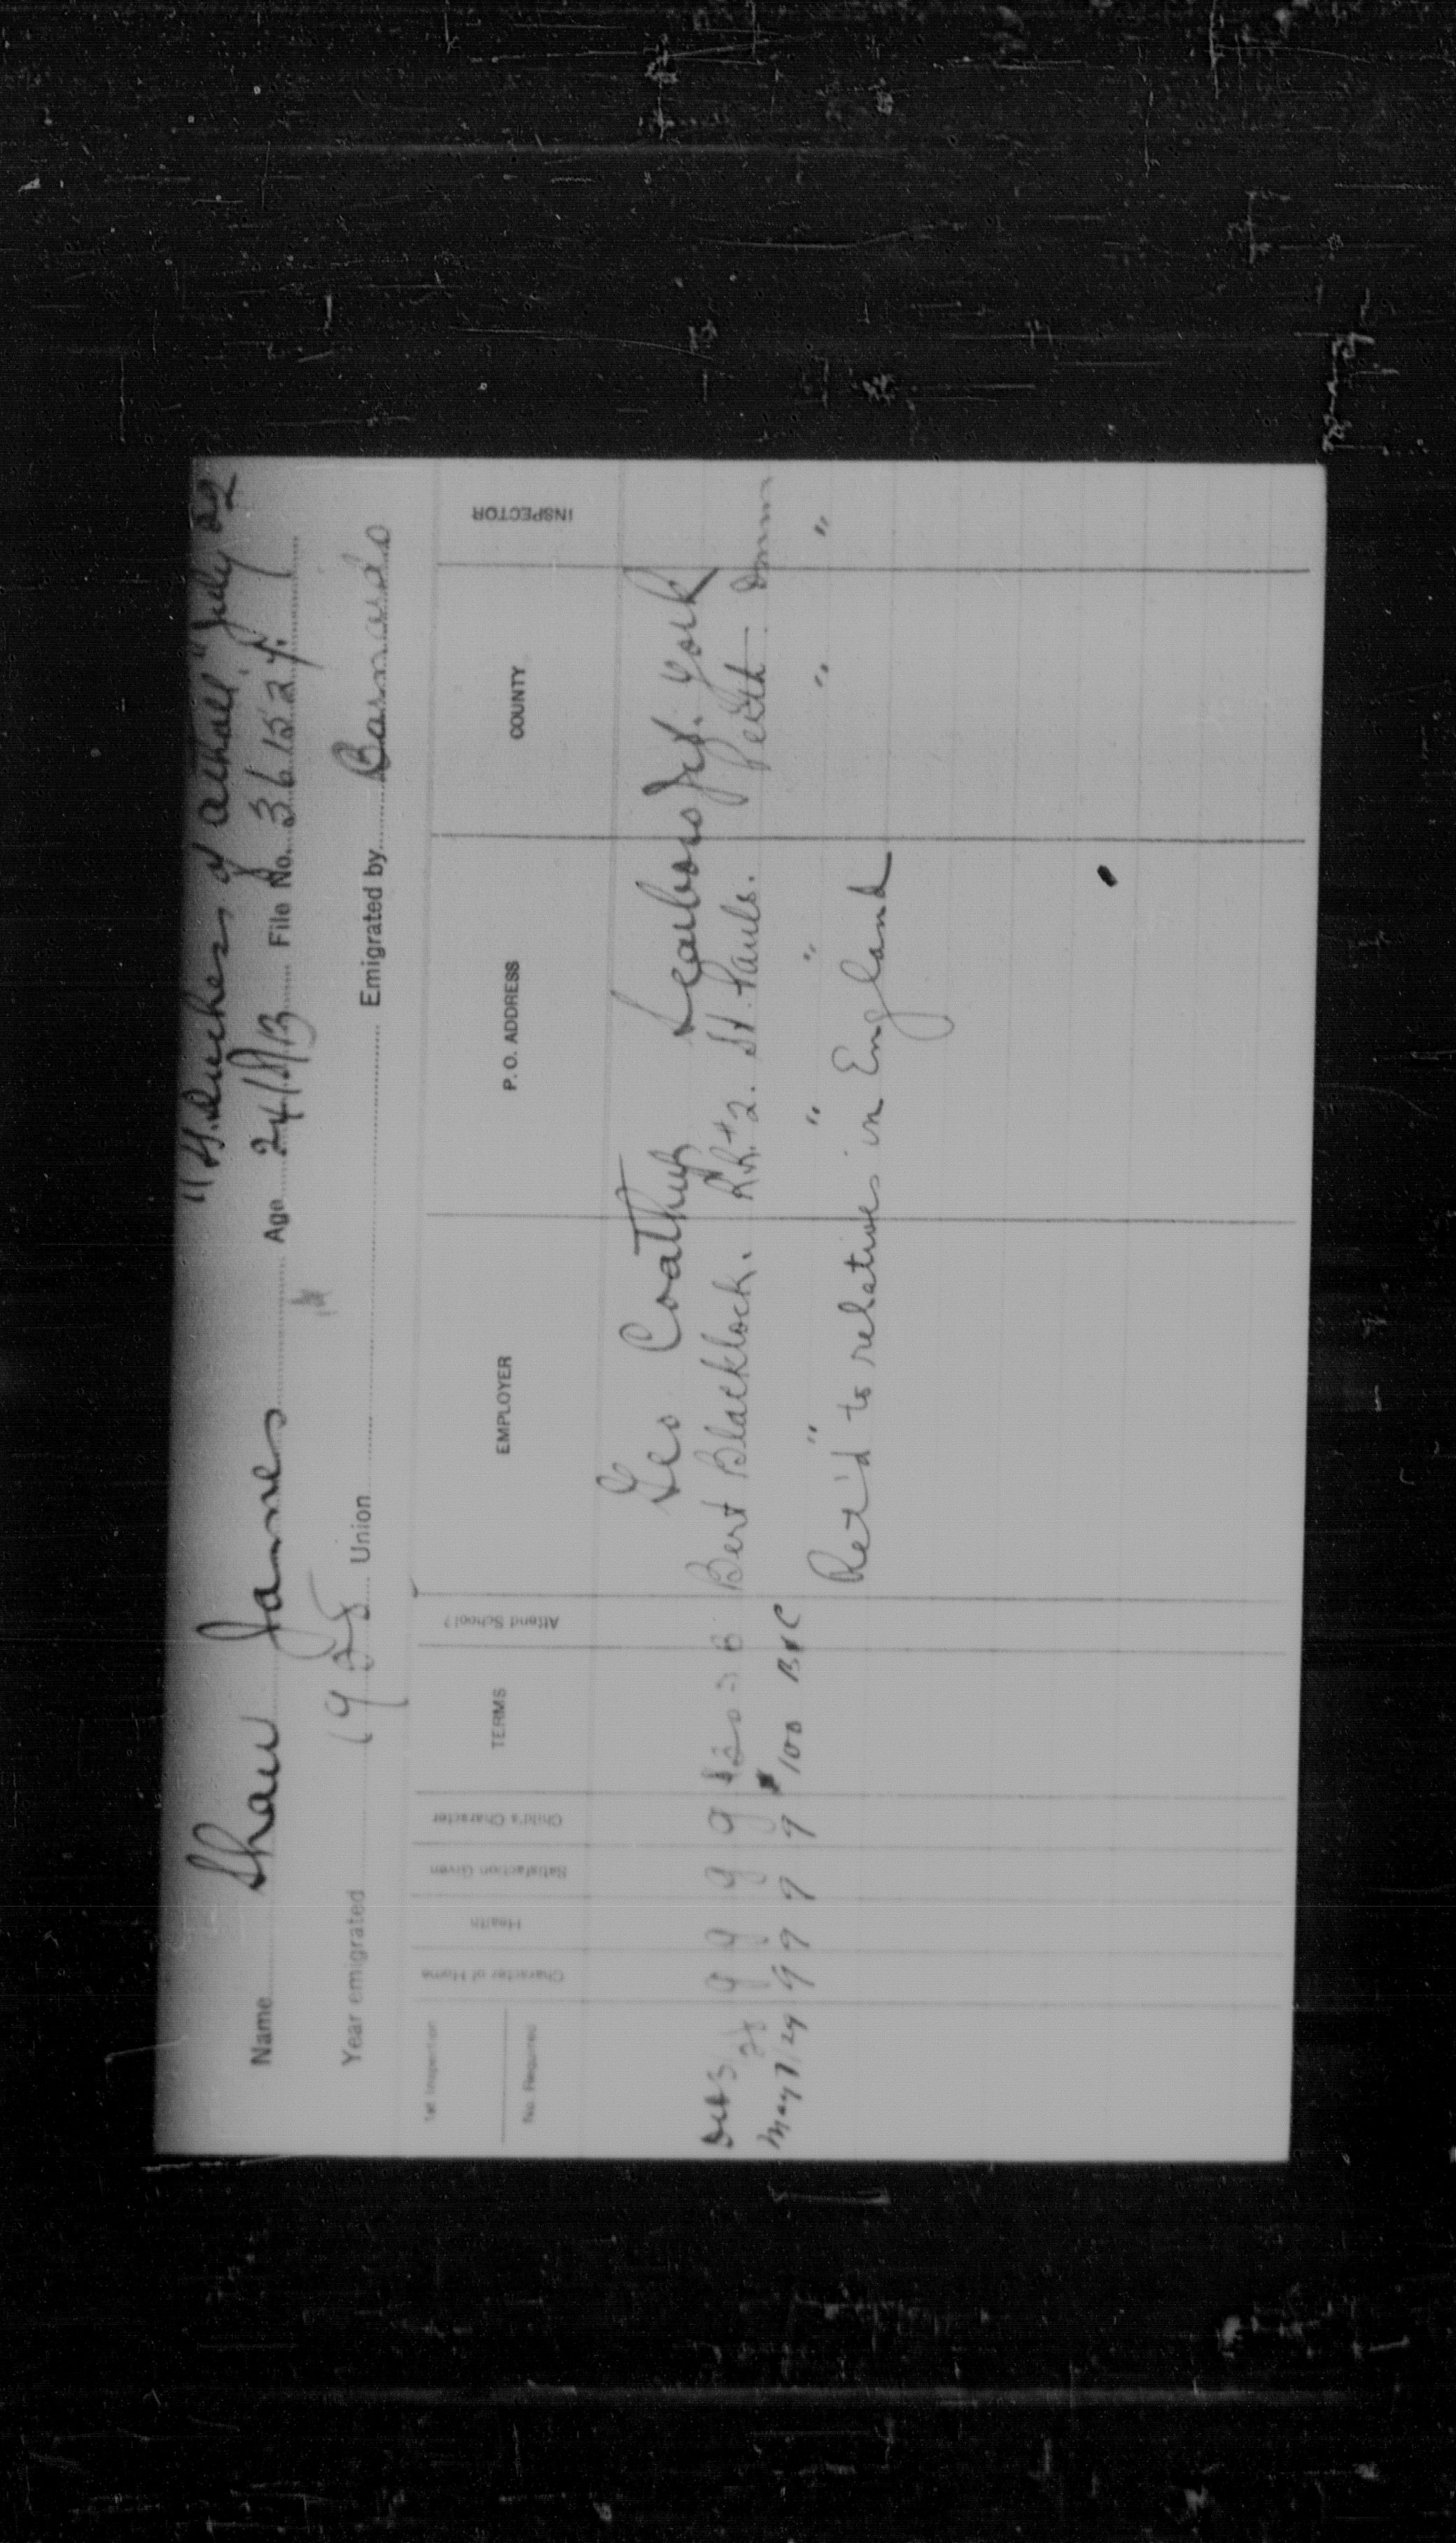 "Duchess of Atholl" July 29
Name Shaw James Age 24/8/13 File No. 361524
Year emigrated 1928 Union Emigrated by Barnardo
1st Inspection
No. Required
Character of Home Health Satisfaction Given Child's Character TERMS Attend School? EMPLOYER P. O. ADDRESS COUNTY INSPECTOR
Geo Coathup Scarboro Jct. York
Oct 3/28 g g g g B Bert Blacklock. RR#2. St. Pauls. Perth
May 7/29 g g g g $100 B & C " " " " "
Ret'd to relatives in England